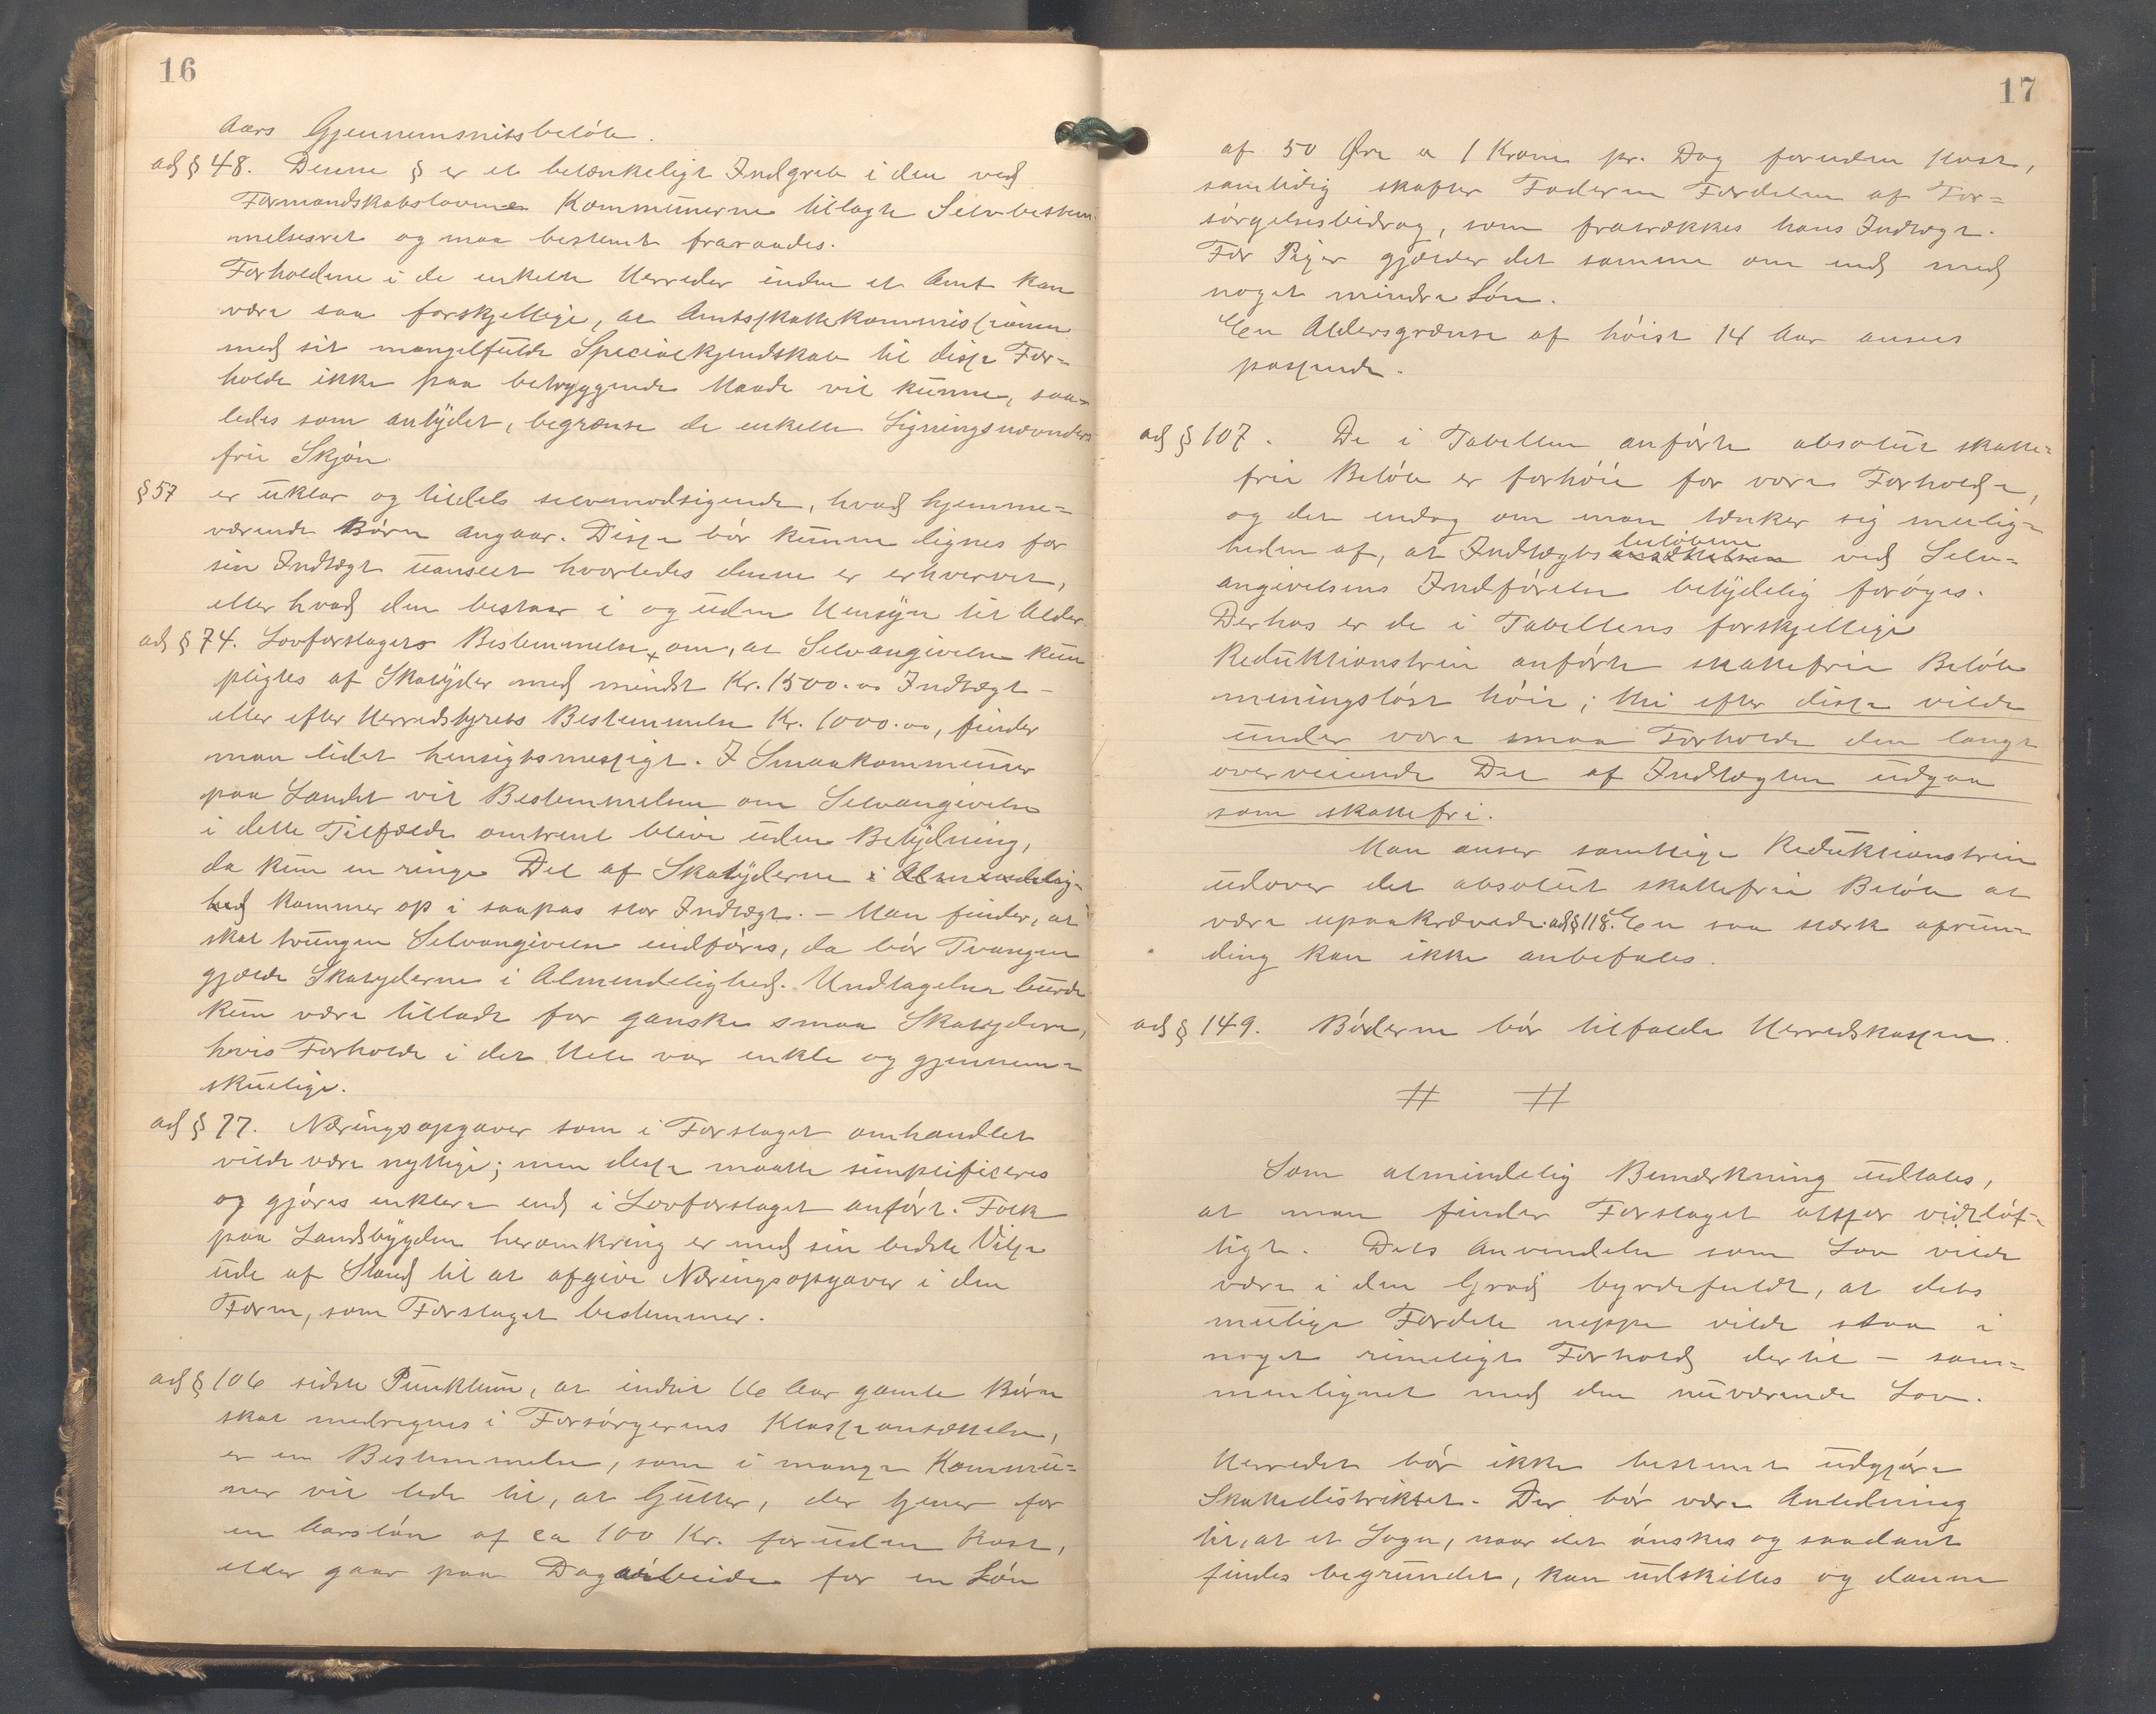 16
Aars Gjennemsnitsbeløb.
ad § 48. Denne § er et betænkeligt Indgreb i den ved
Formandskabslovene Kommunerne tillagte Selvbestem-
melsesret og maa bestemt fraraades.
Forholdene i de enkelte Herreder inden et Amt kan
være saa forskjellige, at Amtsskattekommissionen
med sit mangelfulde Specialkjendskab til disse For=
holde ikke paa betryggende Maade vil kunne, saa=
ledes som antydet, begrænse de enkelte Ligningsnævnders
frie Skjøn
§ 57 er uklar og tildels selvmodsigende, hvad hjemme=
værende Børn angaar. Disse bør kunne lignes for
sin Indtægt uanseet hvorledes denne er erhvervet,
eller hvad den bestaar i og uden Hensyn til Alder.
ad § 74. Lovforslagets Bestemmelse om, at Selvangivelse kun
pligtes af Skatyder med mindst Kr. 1500.00 Indtægt -
eller efter Herredstyrets Bestemmelse Kr. 1000.00, finder
man lidet hensigtsmessigt. I Smaakommuner
paa Landet vil Bestemmelsen om Selvangivelse
i dette Tilfælde omtrent blive uden Betydning,
da kun en ringe Del af Skatyderne i Almindelig-
hed kommer op i saapas stor Indtægt. - Man finder, at
skal tvungen Selvangivelse indføres, da bør Tvangen
gjælde Skatyderne i Almendelighed. Undtagelse burde
kun være tilladt for ganske smaa Skatydere,
hvis Forholde i det Hele var enkle og gjennem=
skuelige.
ad § 77. Næringsopgaver som i Forslaget omhandlet
vilde være nyttige; men disse maatte simplificeres
og gjøres enklere end i Lovforslaget anført. Folk
paa Landsbygden heromkring er med sin bedste Vilje
ude af Stand til at afgive Næringsopgaver i den
Form, som Forslaget bestemmer.
ad § 106 sidste Punktum, at indtil 16 Aar gamle Børn
skal medregnes i Forsørgerens Klasseansættelse,
er en Bestemmelse, som i mange Kommu=
ner vil lede til, at Gutter, der tjener for
en Aarsløn af ca 100 Kr. foruden Kost,
eller gaar paa Dagarbeide for en Løn
17
af 50 Øre a 1 Krone pr. Dag foruden Kost,
samtidig skaffer Faderen Fordelen af For=
sørgelsesbidrag, som fratrækkes hans Indtægt.
For Piger gjælder det samme om end med
noget mindre Løn.
En Aldersgrænse af høist 14 Aar ansees
passende.
ad § 107. De i Tabellen anførte absolut skatte=
frie Beløb er forhøie for vore Forholde,
og det endog om man tænker sig mulig=
heden af, at Indtægtsansættelsen beløbene ved Selv=
angivelsens Indførelse betydelig forøges.
Derhos er de i Tabellens forskjellige
Reduktionstrin anførte skattefrie Beløb
meningsløst høie; thi efter disse vilde
under vore smaa Forholde den langt
overveiende Del af Indtægten udgaa
som skattefri.
Man anser samtlige Reduktionstrin
udover det absolut skattefrie Beløb at
være upaakrævede. ad § 118. En saa stærk afrun=
ding kan ikke anbefales.
ad § 149. Bøderne bør tilfalde Herredskassen.
# #
Som almindelig Bemærkning udtales,
at man finder Forslaget altfor vidtløf=
tigt. Dets Anvendelse som Lov vilde
være i den Grad byrdefuldt, at dets
mulige Fordele neppe vilde staa i
noget rimeligt Forhold dertil - sam=
menlignet med den nuværende Lov.
Herredet bør ikke bestemt udgjøre
Skattedistriktet. Der bør være Anledning
til, at et Sogn, naar det ønskes og saadant
findes begrundet, kan udskilles og danne